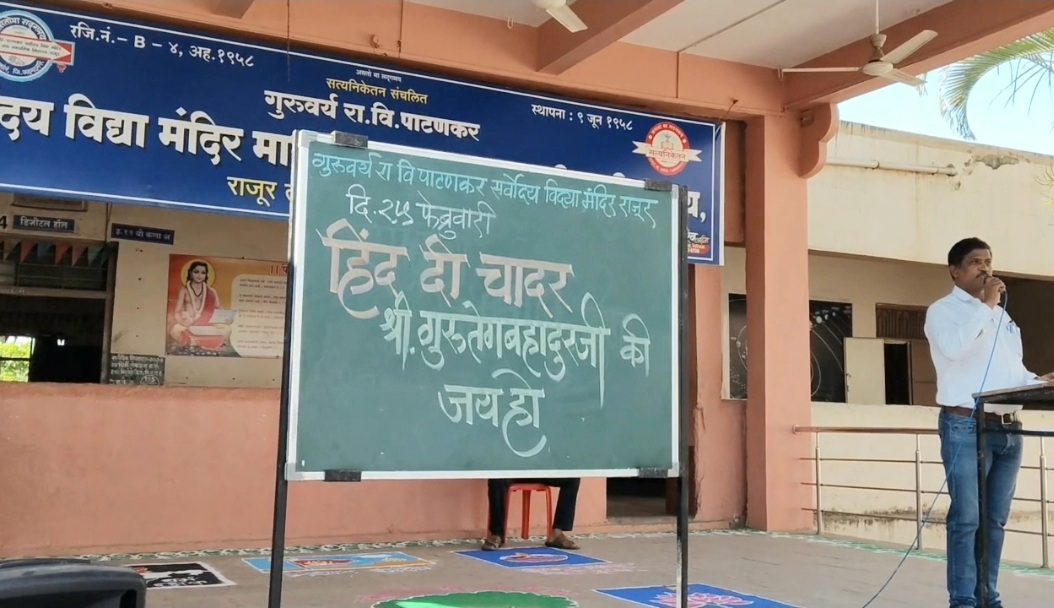 रजि.नं.- B - ४, अह.१९५८
असतो मा सद्गमय
सत्यनिकेतन संचलित
गुरुवर्य रा.वि.पाटणकर
स्थापना : ९ जून १९५८
दय विद्या मंदिर मा
राजूर
सत्यनिकेतन
डिजीटल हॉल
गुरुवर्य रा वि पाटणकर सर्वोदय विद्या मंदिर राजूर
दि.२५ फेब्रुवारी
हिंद दी चादर
श्री.गुरुतेगबहादुरजी की
जय हो